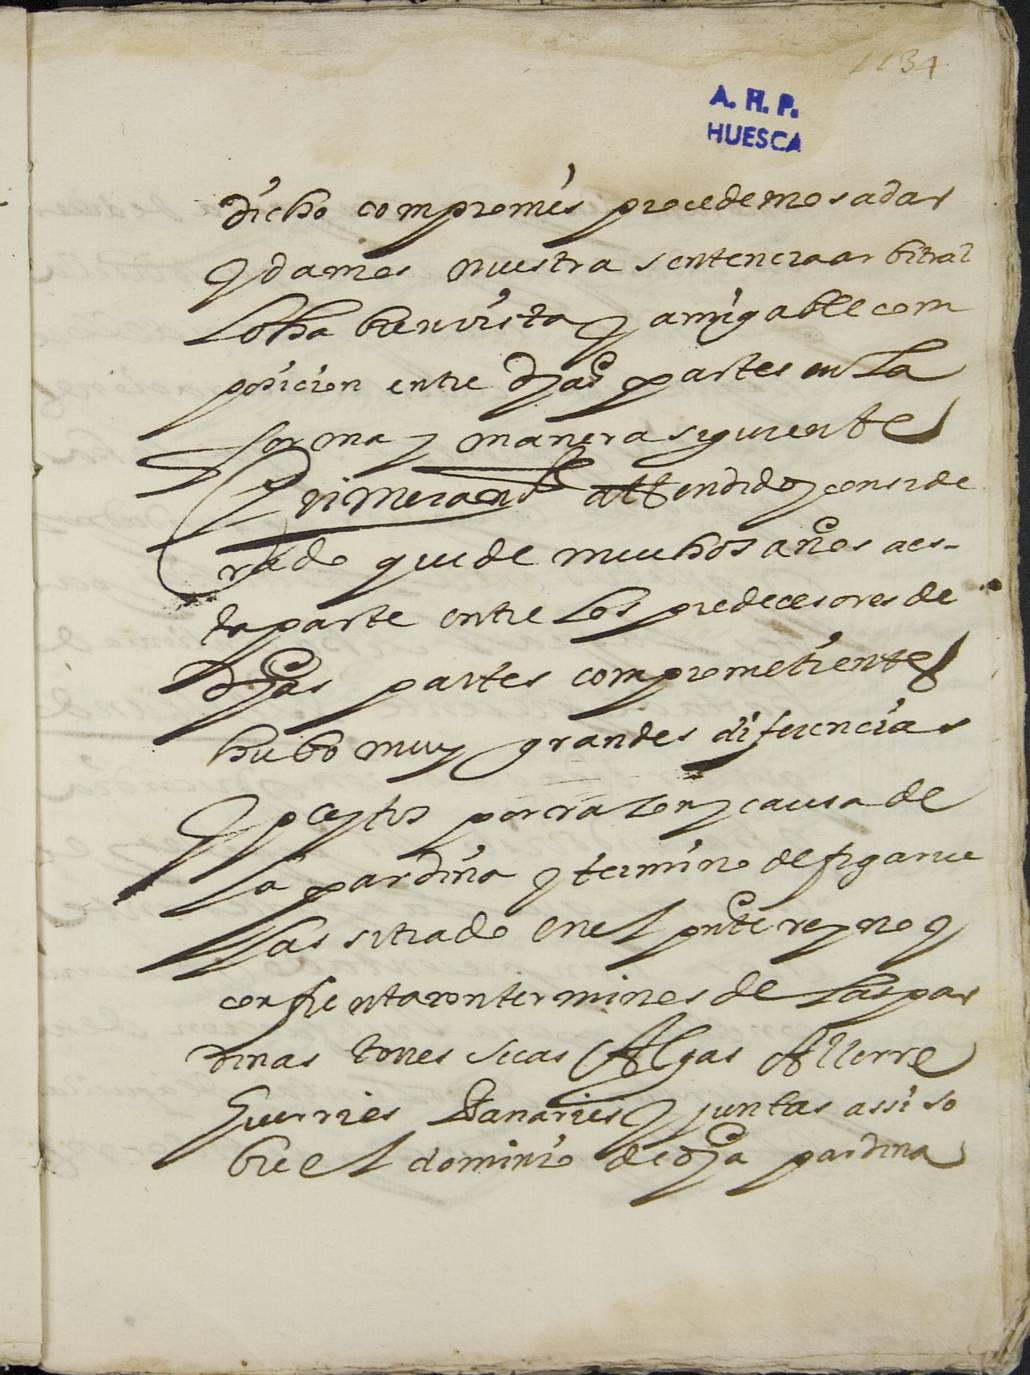 1134
A. H. P.
HUESCA
dicho compromis procedemos a dar
y damos nuestra sentencia arbitral
Loha bien vista y amigable com
posicion entre dhas partes en La
forma y manera siguiente
Primerament attendido y conside
rado que de muchos años aes-
ta parte entre Los predecesores de
dhas partes comprometientes
hubo muy grandes diferencias
y pleytos por razon y causa de
La pardina y termino de figarue
las sitiado en el pnte reyno y
confrenta con terminos de Las par
dinas torres secas Algas Allerre
Guerrios Panaries y juntas assi so
bre el dominio de dha pardina